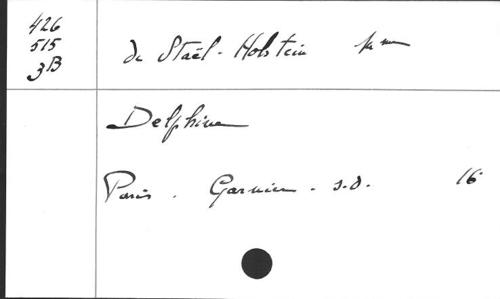 426
515
3B
de Staël-Holstein Mme
Delphine
Paris. Garnier. s.d. 16°